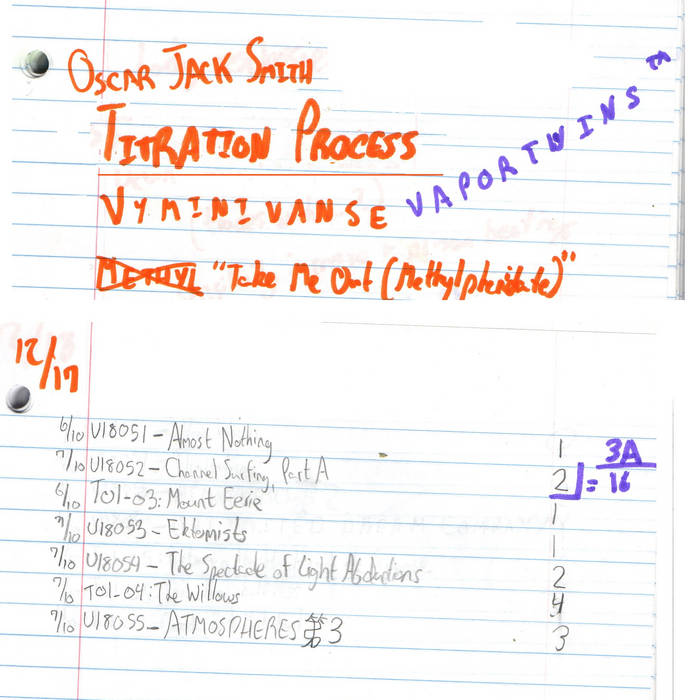 OSCAR JACK SMITH
TITRATION PROCESS
VAPORTWINS™
VYMINIVANSE
METHYL "Take Me Out (Methylphenidate)"
12/17
6/10 U18051 - Almost Nothing 1
7/10 U18052 - Channel Surfing, Part A 2 = 3A/16
6/10 T01-03: Mount Eerie 1
7/10 U18053 - Ektomists 1
7/10 U18054 - The Spectacle of Light Abductions 2
7/10 T01-04: The Willows 4
7/10 U18055 - ATMOSPHERES 第3 3